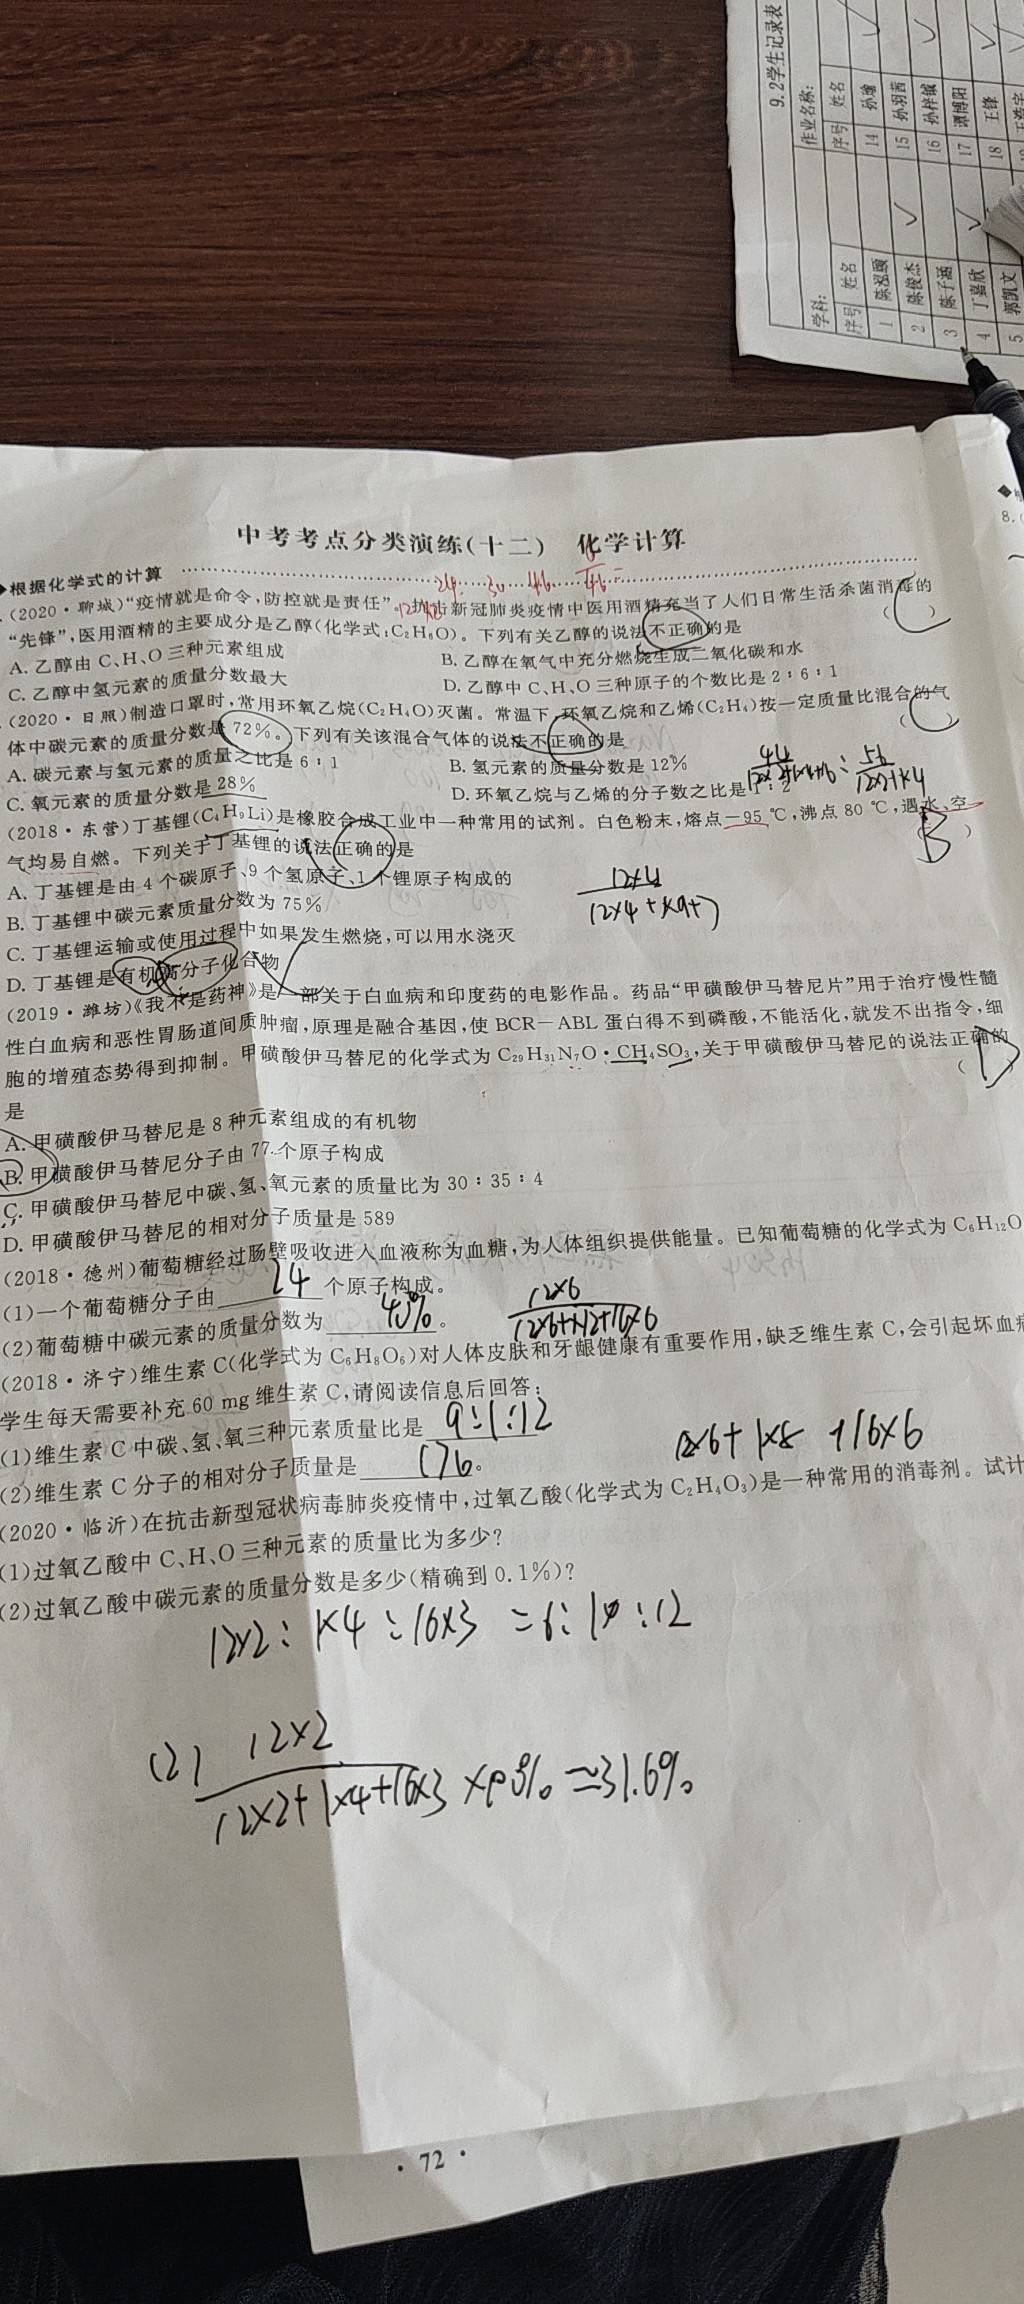 9.2学生记录表
作业名称:
学科:
序号 姓名 序号 姓名
1 陈泓颐 14 孙瑜
2 陈俊杰 15 孙羽茜
3 陈子涵 16 孙梓铖
4 丁嘉欣 17 谭博阳
5 郭凯文 18 王锋
8.(
中考考点分类演练(十二) 化学计算
根据化学式的计算
(2020·聊城)“疫情就是命令,防控就是责任”。抗击新冠肺炎疫情中医用酒精充当了人们日常生活杀菌消毒的
“先锋”,医用酒精的主要成分是乙醇(化学式:C₂H₆O)。下列有关乙醇的说法不正确的是 ( C )
A. 乙醇由 C、H、O 三种元素组成 B. 乙醇在氧气中充分燃烧生成二氧化碳和水
C. 乙醇中氢元素的质量分数最大 D. 乙醇中 C、H、O 三种原子的个数比是 2∶6∶1
(2020·日照)制造口罩时,常用环氧乙烷(C₂H₄O)灭菌。常温下,环氧乙烷和乙烯(C₂H₄)按一定质量比混合的气
体中碳元素的质量分数是 72%。下列有关该混合气体的说法不正确的是 ( C )
A. 碳元素与氢元素的质量之比是 6∶1 B. 氢元素的质量分数是 12%
C. 氧元素的质量分数是 28% D. 环氧乙烷与乙烯的分子数之比是
(2018·东营)丁基锂(C₄H₉Li)是橡胶合成工业中一种常用的试剂。白色粉末,熔点－95 ℃,沸点 80 ℃,遇水、空
气均易自燃。下列关于丁基锂的说法正确的是 ( B )
A. 丁基锂是由 4 个碳原子、9 个氢原子、1 个锂原子构成的
12×4
B. 丁基锂中碳元素质量分数为 75%
C. 丁基锂运输或使用过程中如果发生燃烧,可以用水浇灭
D. 丁基锂是有机高分子化合物
(2019·潍坊)《我不是药神》是一部关于白血病和印度药的电影作品。药品“甲磺酸伊马替尼片”用于治疗慢性髓
性白血病和恶性胃肠道间质肿瘤,原理是融合基因,使 BCR－ABL 蛋白得不到磷酸,不能活化,就发不出指令,细
胞的增殖态势得到抑制。甲磺酸伊马替尼的化学式为 C₂₉H₃₁N₇O·CH₄SO₃,关于甲磺酸伊马替尼的说法正确的
是 ( D )
A. 甲磺酸伊马替尼是 8 种元素组成的有机物
B. 甲磺酸伊马替尼分子由 77 个原子构成
C. 甲磺酸伊马替尼中碳、氢、氧元素的质量比为 30∶35∶4
D. 甲磺酸伊马替尼的相对分子质量是 589
(2018·德州)葡萄糖经过肠壁吸收进入血液称为血糖,为人体组织提供能量。已知葡萄糖的化学式为 C₆H₁₂O
(1)一个葡萄糖分子由 24 个原子构成。
(2)葡萄糖中碳元素的质量分数为 40%。
12×6
12×6+1×12+16×6
(2018·济宁)维生素 C(化学式为 C₆H₈O₆)对人体皮肤和牙龈健康有重要作用,缺乏维生素 C,会引起坏血病
学生每天需要补充 60 mg 维生素 C,请阅读信息后回答:
(1)维生素 C 中碳、氢、氧三种元素质量比是 9:1:12
(2)维生素 C 分子的相对分子质量是 176。
12×6+1×8+16×6
(2020·临沂)在抗击新型冠状病毒肺炎疫情中,过氧乙酸(化学式为 C₂H₄O₃)是一种常用的消毒剂。试计
(1)过氧乙酸中 C、H、O 三种元素的质量比为多少?
(2)过氧乙酸中碳元素的质量分数是多少(精确到 0.1%)?
12×2:1×4:16×3=6:1:12
(2) 12×2
12×2+1×4+16×3 ×100% ≈31.6%
·72·